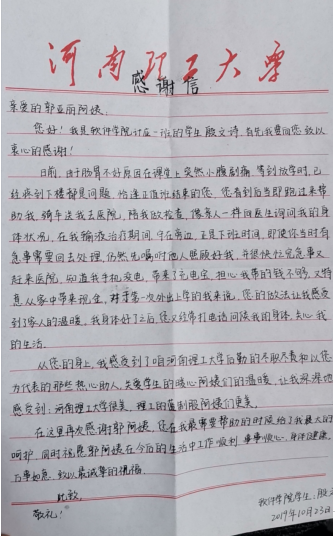 河南理工大学
感谢信
亲爱的郭亚丽阿姨：
您好！我是软件学院计应一班的学生殷文诗，首先我要向您致以
衷心的感谢！
日前，由于肠胃不好原因在课堂上突然小腹剧痛，等到放学时，已
经疼到下楼都是问题，恰逢正值班结束的您，您看到后当即跑过来帮
助我，骑车送我去医院，陪我做检查，像亲人一样向医生询问我的身
体状况，在我输液治疗期间，守在旁边，正是下班时间，即使你当时有
急事需要回去处理，仍然先嘱咐他人照顾好我，并很快忙完急事又
赶来医院，知道我手机没电，带来了充电宝，担心我带的钱不够，又特
意从家中带来现金，对于第一次外出上学的我来说，您的做法让我感受
到了家人的温暖，我身体好了之后，您又经常打电话问候我的身体，关心我
的生活。
从您的身上，我感受到了咱河南理工大学后勤的不服不务和以您
为代表的那些热心助人，关爱学生的暖心阿姨们的温暖，让我深深地
感受到：河南理工大学很美，理工的蓝制服阿姨们更美。
在这里再次感谢郭阿姨，在我最需要帮助的时候给了我最大的
呵护，同时祝愿郭阿姨在今后的生活中工作顺利，事事顺心，身体健康，
万事如意，致以最诚挚的祝福。
此致
敬礼！
软件学院学生：殷文
2019年10月23日